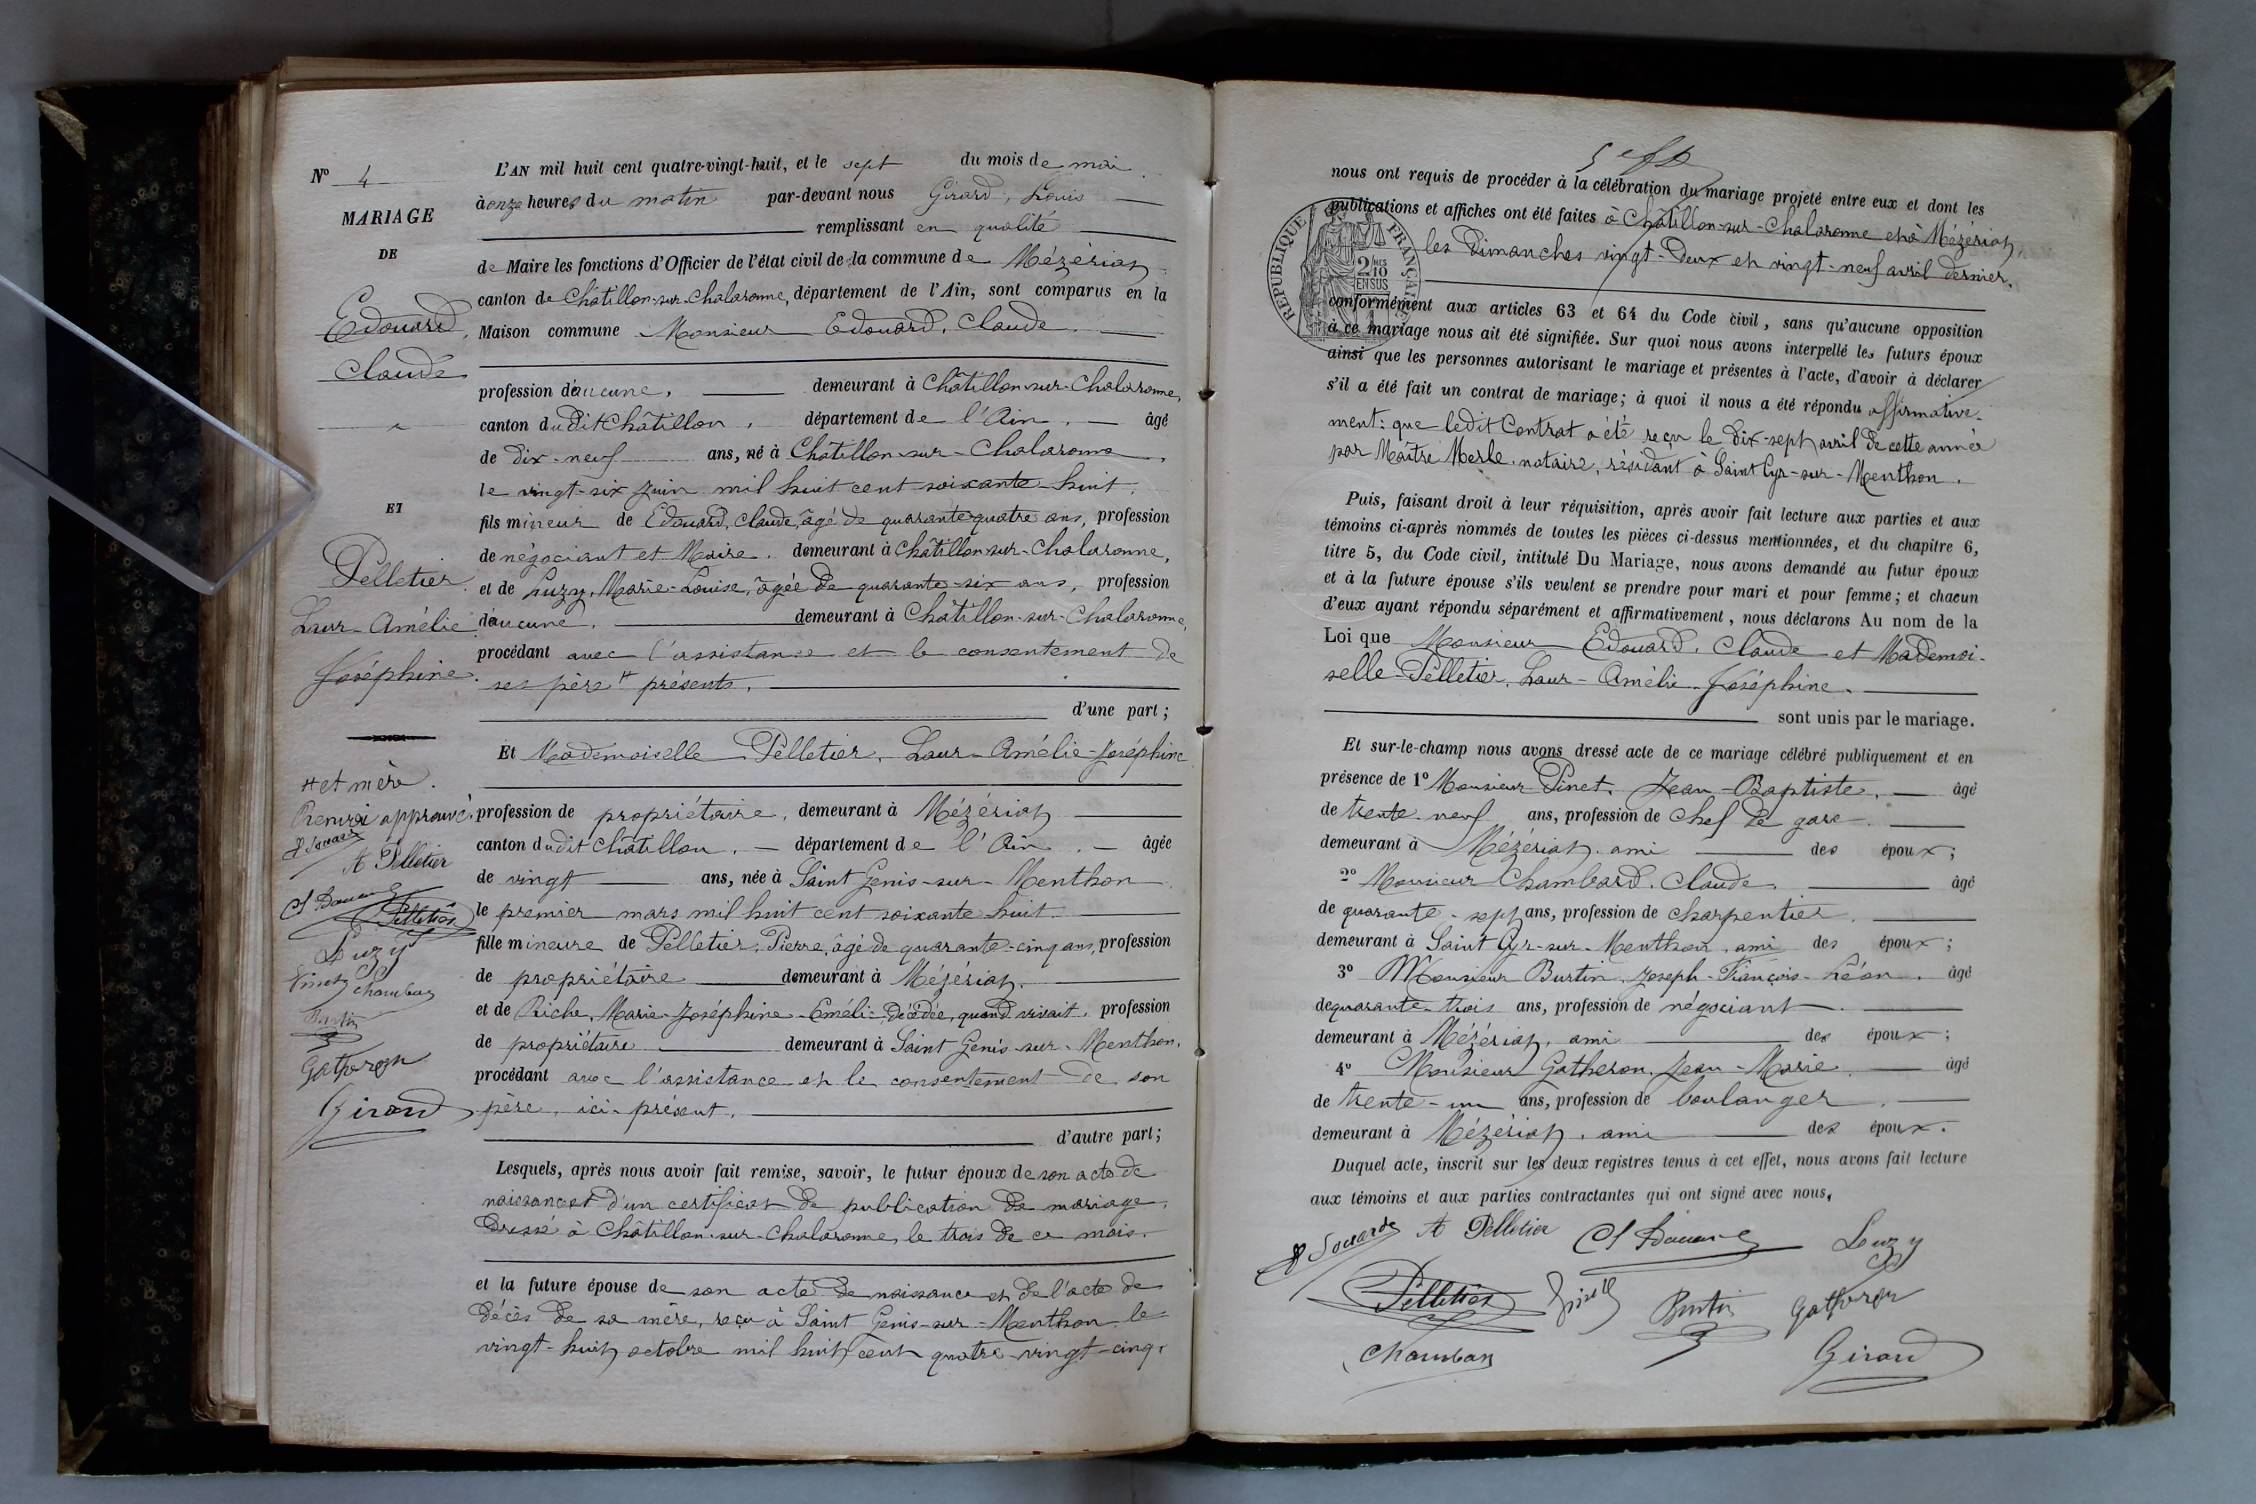 N° 4
MARIAGE
DE
Edouard,
Claude
ET
Pelletier
Laur-Amélie
Joséphine.
# et mère.
Renvoi approuvé.
A Pelletier
Pelletier
Luzy
Pinet
Chambar
Burtin
Gatheron
Girard
L'AN mil huit cent quatre-vingt-huit, et le sept du mois de mai.
à onze heures du matin par-devant nous Girard, Louis
remplissant en qualité
de Maire les fonctions d'Officier de l'état civil de la commune de Mézériat
canton de Châtillon-sur-Chalaronne, département de l'Ain, sont comparus en la
Maison commune Monsieur Edouard, Claude.
profession d'aucune, demeurant à Châtillon-sur-Chalaronne,
canton dudit Châtillon, département de l'Ain, âgé
de dix-neuf ans, né à Châtillon-sur-Chalaronne,
le vingt-six juin mil huit cent soixante-huit.
fils mineur de Edouard, Claude, âgé de quarante-quatre ans, profession
de négociant et Maire. demeurant à Châtillon-sur-Chalaronne,
et de Luzy, Marie-Louise, âgée de quarante-six ans, profession
d'aucune, demeurant à Châtillon-sur-Chalaronne,
procédant avec l'assistance et le consentement de
ses père # présents.
d'une part;
Et Mademoiselle Pelletier, Laur-Amélie-Joséphine
profession de propriétaire, demeurant à Mézériat
canton dudit Châtillon, département de l'Ain, âgée
de vingt ans, née à Saint Genis-sur-Menthon
le premier mars mil huit cent soixante huit.
fille mineure de Pelletier, Pierre, âgé de quarante-cinq ans, profession
de propriétaire demeurant à Mézériat,
et de Riche, Marie-Joséphine-Eméli- décédée, quand vivait, profession
de propriétaire demeurant à Saint Genis-sur-Menthon,
procédant avec l'assistance et le consentement de son
père, ici-présent.
d'autre part;
Lesquels, après nous avoir fait remise, savoir, le futur époux de son acte de
naissance et d'un certificat de publication de mariage,
dressé à Châtillon-sur-Chalaronne, le trois de ce mois.
et la future épouse de son acte de naissance et de l'acte de
décès de sa mère, reçu à Saint Genis-sur-Menthon le
vingt-huit octobre mil huit cent quatre-vingt-cinq,
nous ont requis de procéder à la célébration du mariage projeté entre eux et dont les
publications et affiches ont été faites à Châtillon-sur-Chalaronne et à Mézériat
les Dimanches vingt-deux et vingt-neuf avril dernier,
RÉPUBLIQUE FRANÇAISE
2/10 EN SUS
conformément aux articles 63 et 64 du Code civil, sans qu'aucune opposition
à ce mariage nous ait été signifiée. Sur quoi nous avons interpellé les futurs époux
ainsi que les personnes autorisant le mariage et présentes à l'acte, d'avoir à déclarer
s'il a été fait un contrat de mariage; à quoi il nous a été répondu affirmative-
ment: que ledit Contrat a été reçu le dix-sept avril de cette année
par Maître Merle, notaire, résidant à Saint Cyr-sur-Menthon.
Puis, faisant droit à leur réquisition, après avoir fait lecture aux parties et aux
témoins ci-après nommés de toutes les pièces ci-dessus mentionnées, et du chapitre 6,
titre 5, du Code civil, intitulé Du Mariage, nous avons demandé au futur époux
et à la future épouse s'ils veulent se prendre pour mari et pour femme; et chacun
d'eux ayant répondu séparément et affirmativement, nous déclarons Au nom de la
Loi que Monsieur Edouard, Claude et Mademoi-
selle Pelletier, Laur-Amélie-Joséphine.
sont unis par le mariage.
Et sur-le-champ nous avons dressé acte de ce mariage célébré publiquement et en
présence de 1° Monsieur Pinet, Jean-Baptiste, âgé
de trente-neuf ans, profession de Chef de gare.
demeurant à Mézériat, ami des époux;
2° Monsieur Chambard, Claude, âgé
de quarante-sept ans, profession de charpentier,
demeurant à Saint Cyr-sur-Menthon, ami des époux;
3° Monsieur Burtin, Joseph-François-Léon, âgé
de quarante-trois ans, profession de négociant
demeurant à Mézériat, ami des époux;
4° Monsieur Gatheron, Jean-Marie, âgé
de trente-un ans, profession de boulanger,
demeurant à Mézériat, ami des époux.
Duquel acte, inscrit sur les deux registres tenus à cet effet, nous avons fait lecture
aux témoins et aux parties contractantes qui ont signé avec nous,
A Pelletier
Luzy
Pelletier
Burtin
Gatheron
Chambar
Girard